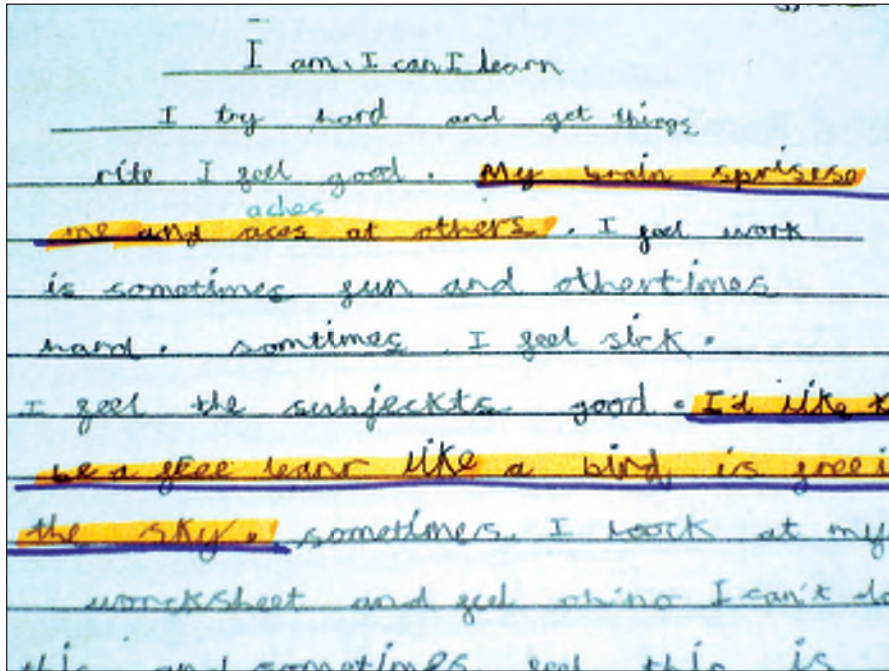 I am, I can I learn
I try hard and get things
rite I feel good. My brain sprisese
aches
me and aces at others. I feel work
is sometimes fun and othertimes
hard. somtimes I feel sick.
I feel the subjeckts good. I'd like t
be a free leanr like a bird is free i
the sky. sometimes I woock at my
worcksheet and feel I can't do
this and sometimes feel this is